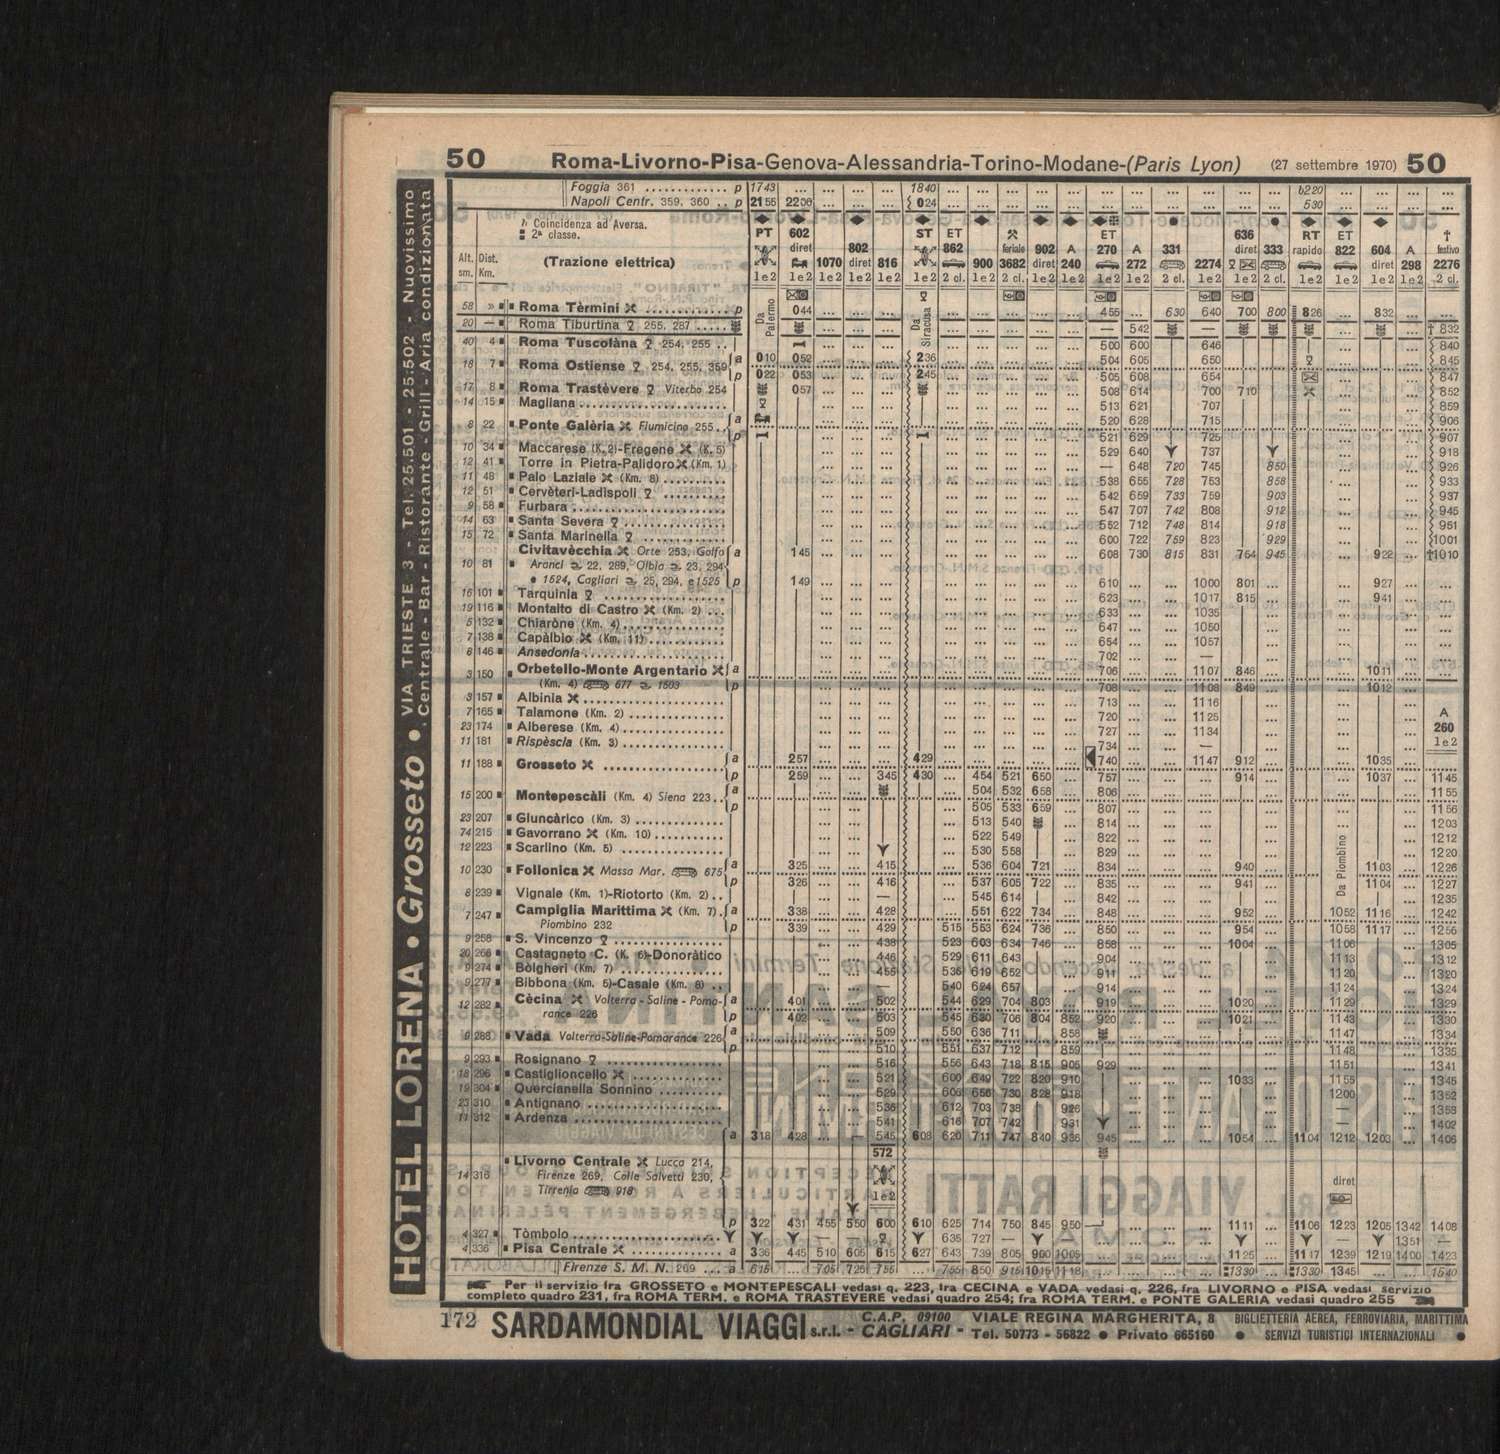 50 Roma-Livorno-Pisa-Genova-Alessandria-Torino-Modane-(Paris Lyon) (27 settembre 1970) 50
HOTEL LORENA • Grosseto • VIA TRIESTE 3 - Tel. 25.501 - 25.502 - Nuovissimo
Centrale - Bar - Ristorante - Grill - Aria condizionata
Foggia 361 ............ p 1743 ... ... ... ... 1840
Napoli Centr. 359, 360 .. p 2155 2200 ... ... ... 024 ... 530
Coincidenza ad Aversa.
2ª classe.
(Trazione elettrica)
Alt. sm. Dist. Km.
PT 602 diret 1070 802 diret 816 ST ET 862 900 feriale 3682 902 diret A 240 ET 270 A 272 331 2274 636 diret 333 RT rapido ET 822 604 diret A 298 † festivo 2276
1e2 1e2 1e2 1e2 1e2 1e2 2 cl. 1e2 2 cl. 1e2 1e2 1e2 1e2 2 cl. 1e2 1e2 2 cl. 1e2 1e2 1e2 1e2 2 cl.
Da Palermo
Da Siracusa
58 » Roma Tèrmini p 044 455 ... 630 640 700 800 826 ... 832
20 — Roma Tiburtina 255, 287 — 542 — † 832
40 4 Roma Tuscolàna 254, 255 .. 500 600 646 840
18 7 Roma Ostiense 254, 255, 359 a 010 052 236 504 605 650 845
p 022 053 245 505 608 654 847
17 8 Roma Trastèvere Viterbo 254 057 508 614 700 710 852
14 15 Magliana 513 621 707 859
8 22 Ponte Galèria Fiumicino 255 .. a 520 628 715 906
p 521 629 725 907
10 34 Maccarese (K. 2)-Fregene (K. 5) 529 640 737 918
12 41 Torre in Pietra-Palidoro (Km. 1) — 648 720 745 850 926
11 48 Palo Laziale (Km. 8) 538 655 728 753 858 933
12 51 Cervèteri-Ladispoli 542 659 733 759 903 937
9 58 Furbara 547 707 742 808 912 945
14 63 Santa Severa 552 712 748 814 918 951
15 72 Santa Marinella 600 722 759 823 929 1001
Civitavècchia Orte 253, Golfo a 145 608 730 815 831 754 945 922 †1010
10 81 Aranci 22, 289, Olbia 23, 294
• 1524, Cagliari 25, 294, e 1525 p 149 610 1000 801 927
16 101 Tarquinia 623 1017 815 941
19 116 Montalto di Castro (Km. 2) 633 1035
5 132 Chiaròne (Km. 4) 647 1050
7 138 Capàlbio (Km. 11) 654 1057
6 146 Ansedonia 702 —
3 150 Orbetello-Monte Argentario a 706 1107 846 1011
(Km. 4) 677 1503 p 708 1108 849 1012
3 157 Albinia 713 1116
7 165 Talamone (Km. 2) 720 1125 A
23 174 Alberese (Km. 4) 727 1134 260
11 181 Rispèscia (Km. 3) 734 — 1e2
11 188 Grosseto a 257 429 740 1147 912 1035
p 259 345 430 454 521 650 757 914 1037 1145
15 200 Montepescàli (Km. 4) Siena 223 .. a 504 532 658 806 1155
p 505 533 659 807 1156
23 207 Giuncàrico (Km. 3) 513 540 814 1203
74 215 Gavorrano (Km. 10) 522 549 822 1212
12 223 Scarlino (Km. 5) 530 558 829 1220
10 230 Follonica Massa Mar. 675 a 325 415 536 604 721 834 940 1103 1226
p 326 416 537 605 722 835 941 1104 1227
8 239 Vignale (Km. 1)-Riotorto (Km. 2) .. — 545 614 842 1235
Da Piombino
7 247 Campiglia Marittima (Km. 7) . a 338 428 551 622 734 848 952 1052 1116 1242
Piombino 232 p 339 429 515 553 624 736 850 954 1058 1117 1256
9 258 S. Vincenzo 438 523 603 634 746 858 1004 1106 1305
20 266 Castagneto C. (K. 6)-Donoràtico 446 529 611 643 904 1113 1312
9 274 Bòlgheri (Km. 7) 455 536 619 652 911 1120 1320
9 277 Bibbona (Km. 5)-Casale (Km. 8) .. — 540 624 657 914 1124 1324
12 282 Cècina Volterra - Saline - Poma- a 401 502 544 629 704 803 919 1020 1129 1329
rance 226 p 402 503 545 630 706 804 852 920 1021 1143 1330
9 288 Vada Volterra-Saline-Pomarance 226 a 509 550 636 711 858 1147 1334
p 510 551 637 712 859 1148 1335
9 293 Rosignano 516 556 643 718 815 905 929 1151 1341
18 296 Castiglioncello 521 600 649 722 820 910 1033 1155 1345
19 304 Quercianella Sonnino 529 606 656 730 828 918 1200 1352
23 310 Antignano 536 612 703 738 926 — 1358
11 312 Ardenza 541 616 707 742 931 — 1402
a 318 428 — 545 608 620 711 747 840 936 945 1054 1104 1212 1203 1406
572
14 316 Livorno Centrale Lucca 214,
Firenze 269, Colle Salvetti 230,
Tirrenia 918
1e2
diret
p 322 431 455 550 600 610 625 714 750 845 950 1111 1106 1223 1205 1342 1408
4 327 Tòmbolo 635 727 — — 1351 —
4 336 Pisa Centrale a 336 445 510 605 615 627 643 739 805 900 1005 1125 1117 1239 1219 1400 1423
Firenze S. M. N. 269 ... a 615 ... 705 725 755 755 850 915 1015 1118 1330 1330 1345 1540
Per il servizio fra GROSSETO e MONTEPESCALI vedasi q. 223, fra CECINA e VADA vedasi q. 226, fra LIVORNO e PISA vedasi servizio
completo quadro 231, fra ROMA TERM. e ROMA TRASTEVERE vedasi quadro 254; fra ROMA TERM. e PONTE GALERIA vedasi quadro 255
172 SARDAMONDIAL VIAGGI s.r.l. - C.A.P. 09100 CAGLIARI - VIALE REGINA MARGHERITA, 8 BIGLIETTERIA AEREA, FERROVIARIA, MARITTIMA
Tel. 50773 - 56822 • Privato 665160 • SERVIZI TURISTICI INTERNAZIONALI •